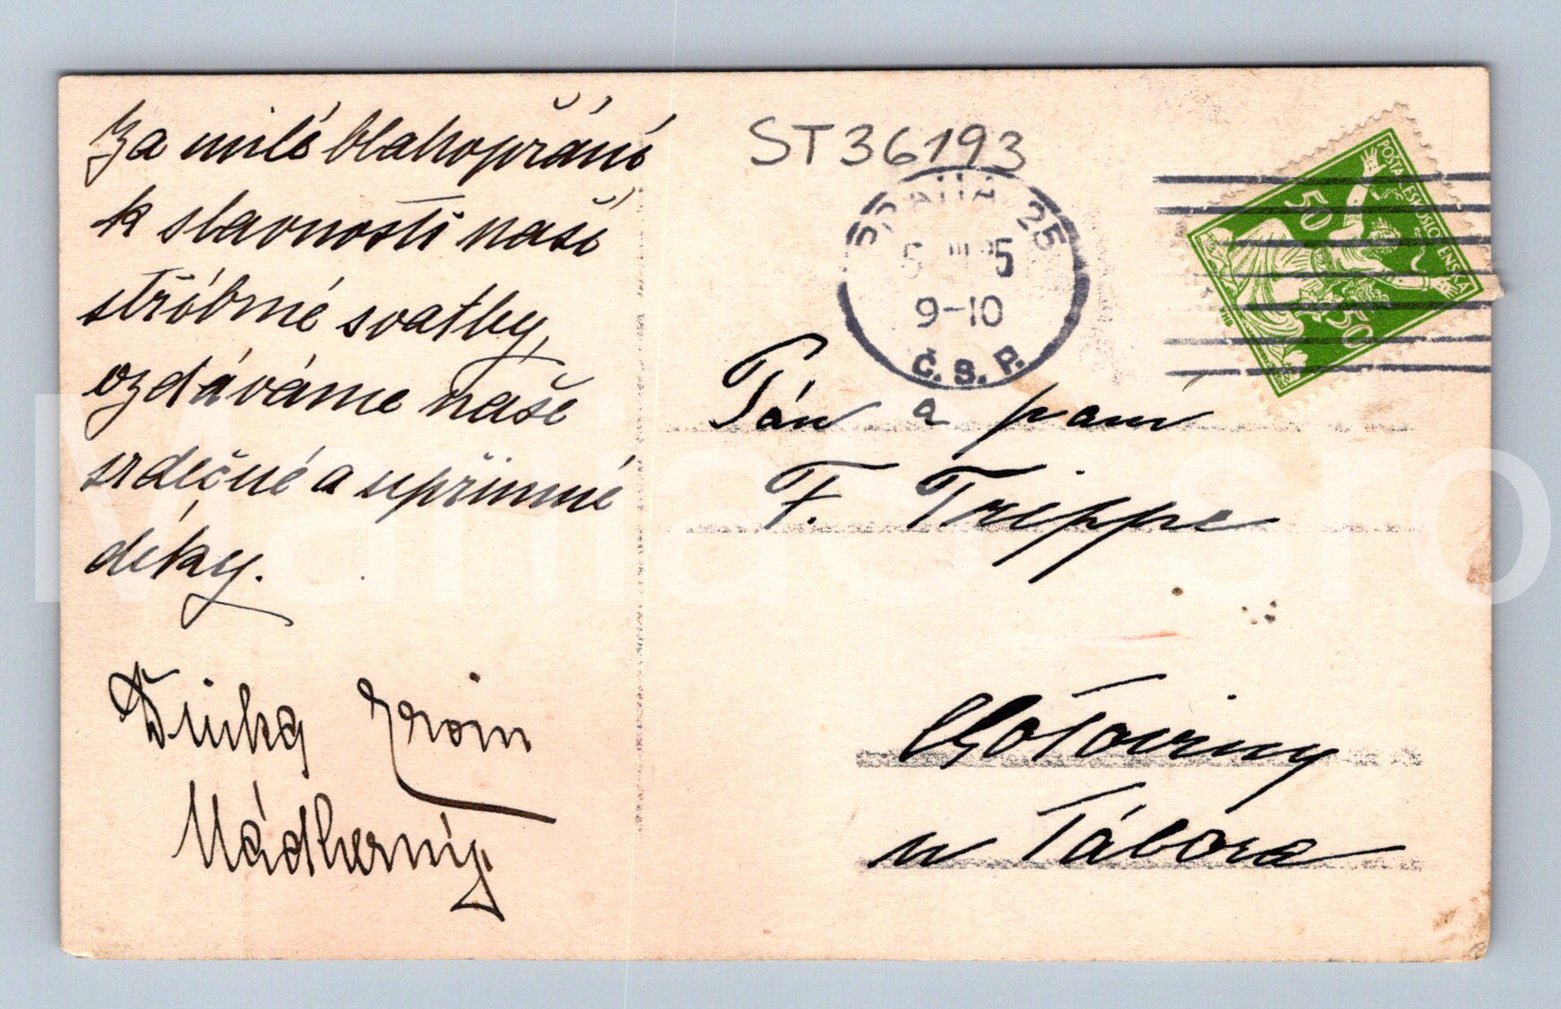 Za milé blahopřání
k slavnosti naší
stříbrné svatby,
vzdáváme naše
srdečné a upřímné
díky.
Nádherný
ST36193
PRAHA 25
5 III 25
9-10
Č.S.P.
50
POŠTA ČESKOSLOVENSKÁ
50
Pán a paní
F. Trippe
Chotoviny
u Tábora